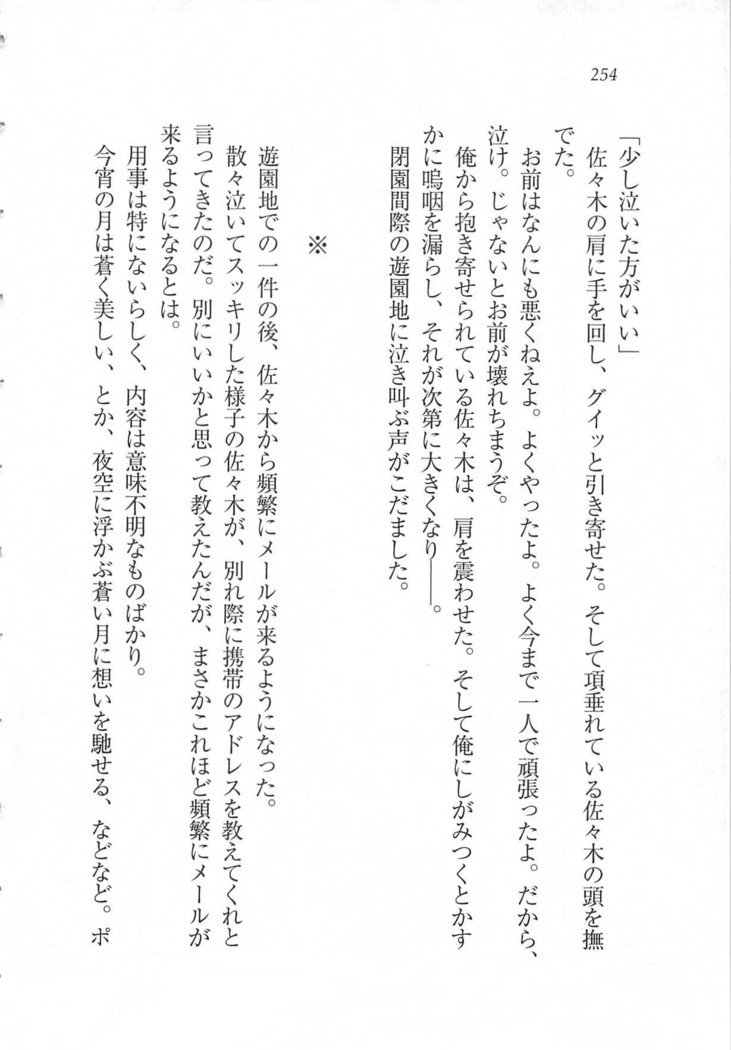 254
「少し泣いた方がいい」
　佐々木の肩に手を回し、グイッと引き寄せた。そして項垂れている佐々木の頭を撫
でた。
　お前はなんにも悪くねえよ。よくやったよ。よく今まで一人で頑張ったよ。だから、
泣け。じゃないとお前が壊れちまうぞ。
　俺から抱き寄せられている佐々木は、肩を震わせた。そして俺にしがみつくとかす
かに嗚咽を漏らし、それが次第に大きくなり――。
　閉園間際の遊園地に泣き叫ぶ声がこだました。
※
　遊園地での一件の後、佐々木から頻繁にメールが来るようになった。
　散々泣いてスッキリした様子の佐々木が、別れ際に携帯のアドレスを教えてくれと
言ってきたのだ。別にいいかと思って教えたんだが、まさかこれほど頻繁にメールが
来るようになるとは。
　用事は特にないらしく、内容は意味不明なものばかり。
　今宵の月は蒼く美しい、とか、夜空に浮かぶ蒼い月に想いを馳せる、などなど。ポ